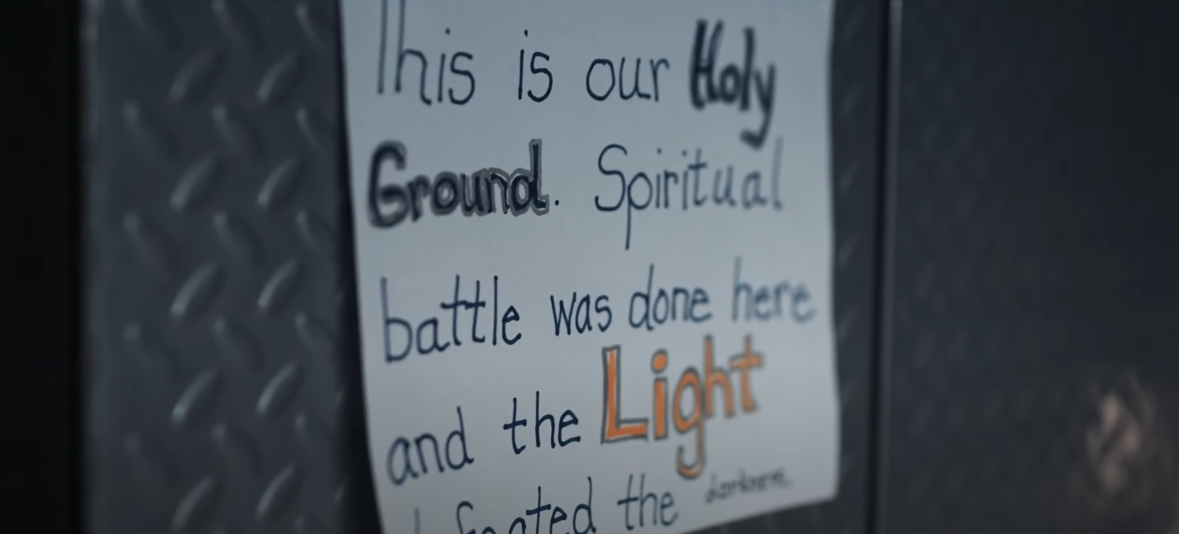 This is our Holy
Ground. Spiritual
battle was done here
and the Light
defeated the darkness.